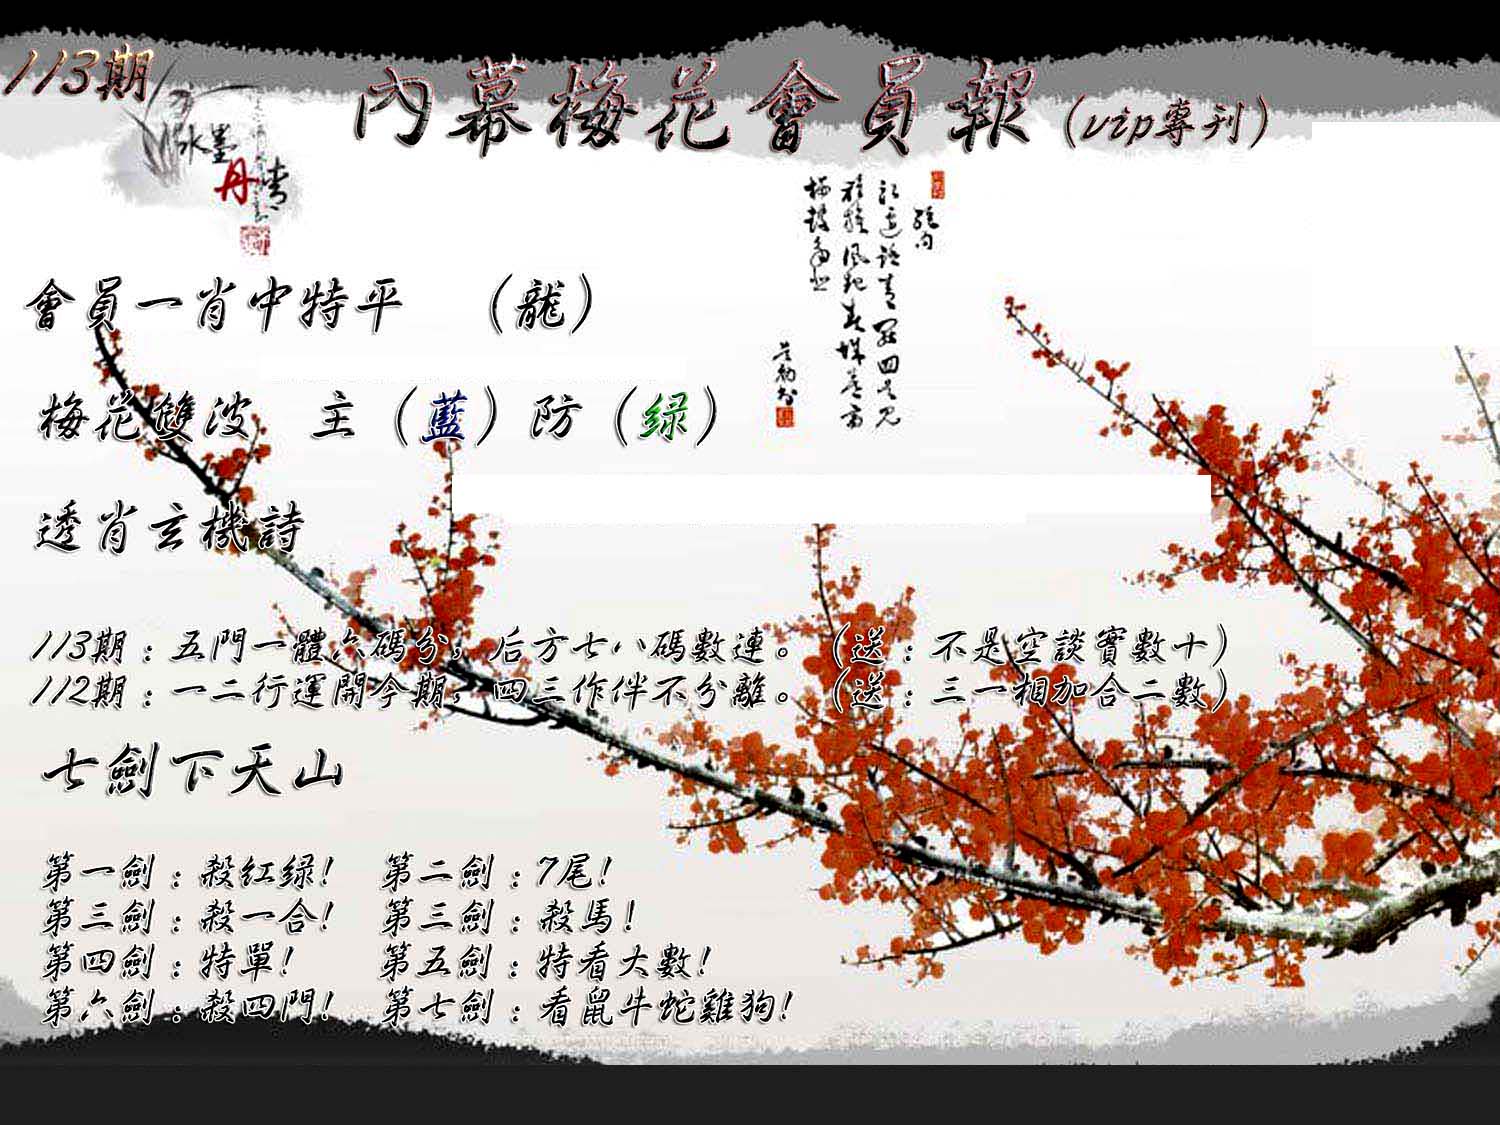 113期
內幕梅花會員報(vip專刊)
水墨
丹青
會員一肖中特平 (龍)
梅花雙波 主(藍)防(绿)
透肖玄機詩
113期：五門一體六碼分，后方七八碼數連。(送：不是空談實數十)
112期：一二行運開今期，四三作伴不分離。(送：三一相加合二數)
七劍下天山
第一劍：殺红绿! 第二劍：7尾!
第三劍：殺一合! 第三劍：殺馬!
第四劍：特單! 第五劍：特看大數!
第六劍：殺四門! 第七劍：看鼠牛蛇雞狗!